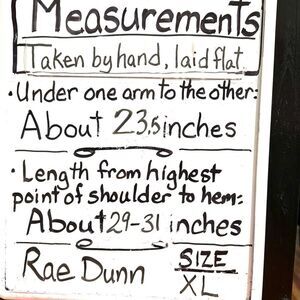 Measurements
Taken by hand, laid flat
• Under one arm to the other:
About 23.5 inches
• Length from highest
point of shoulder to hem:
About 29-31 inches
Rae Dunn SIZE
XL